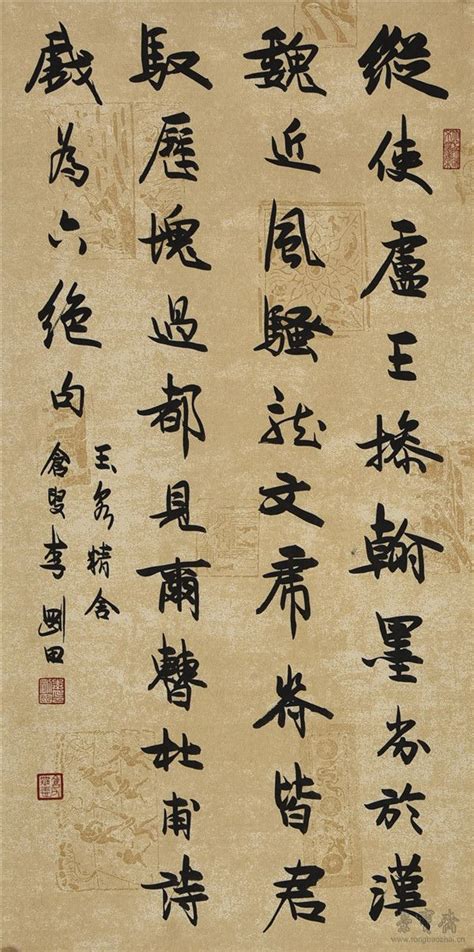 縱使盧王操翰墨劣於漢
魏近風騷龍文虎脊皆君
馭歷塊過都見爾曹杜甫詩
戲為六絕句
玉泉精舍
倉叟李剛田
榮寶齋
www.rongbaozhai.cn